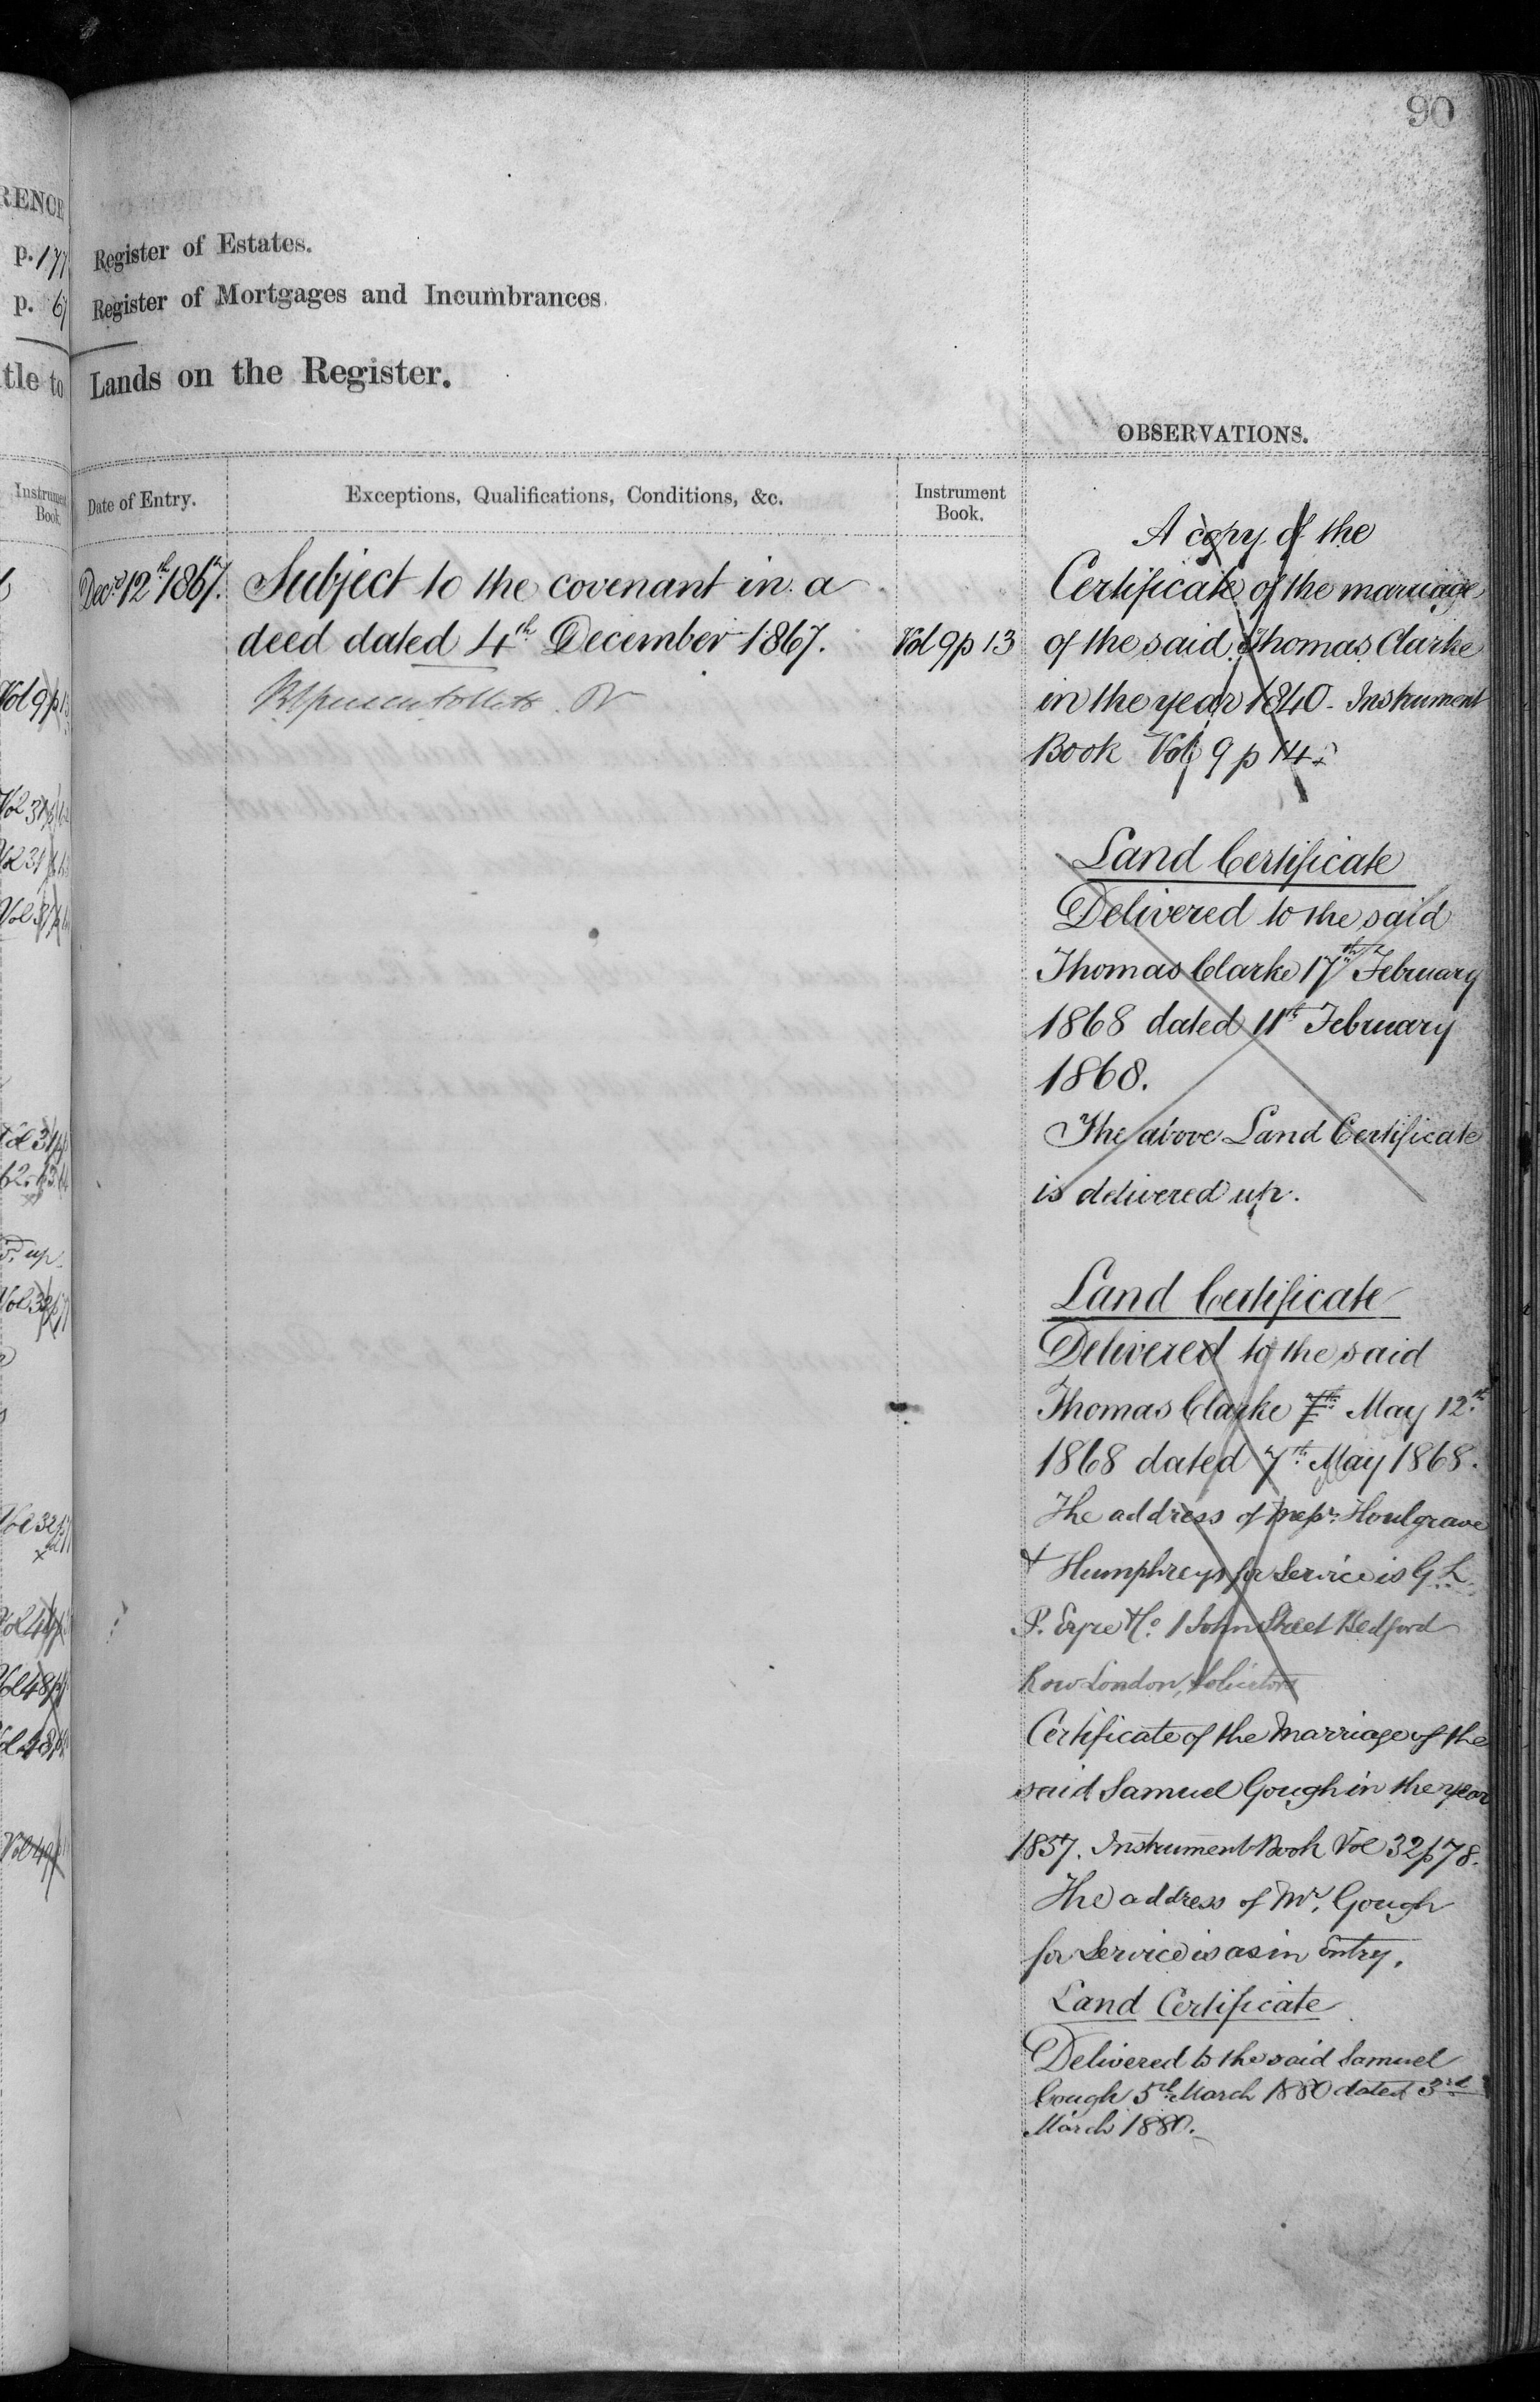 90
RENCE
p. 177
p. 6
tle to
Instrument
Book.
Register of Estates.
Register of Mortgages and Incumbrances.
Lands on the Register.
OBSERVATIONS.
Date of Entry.
Exceptions, Qualifications, Conditions, &c.
Instrument
Book.
Decr 12th 1867.
Subject to the covenant in a
deed dated 4th December 1867.
Vol 9 p 13
A copy of the
Certificate of the marriage
of the said Thomas Clarke
in the year 1840 - Instrument
Book Vol 9 p 14.
Land Certificate
Delivered to the said
Thomas Clarke 17th February
1868 dated 11th February
1868.
The above Land Certificate
is delivered up.
Land Certificate
Delivered to the said
Thomas Clarke 7th May 12th
1868 dated 7th May 1868.
The address of Messrs Houlgrave
& Humphreys for Service is G. L.
P. Eyre & Co 1 John Street Bedford
Row London, Solicitors
Certificate of the Marriage of the
said Samuel Gough in the year
1857. Instrument Book Vol 32 p 78.
The address of Mr. Gough
for Service is as in Entry.
Land Certificate
Delivered to the said Samuel
Gough 5th March 1880 dated 3rd
March 1880.